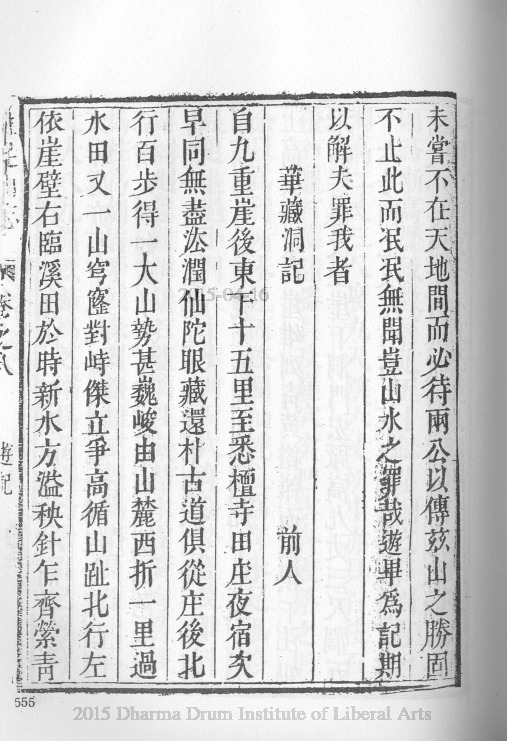 未嘗不在天地間而必待兩公以傳茲山之勝固
不止此而泯泯無聞豈山水之罪哉遊畢爲記期
以解夫罪我者
華藏洞記 前人
自九重崖後東下十五里至悉檀寺田庄夜宿次
早同無盡泓潤仙陀眼藏還朴古道俱從庄後北
行百步得一大山勢甚巍峻由山麓西折一里過
水田又一山穹窿對峙傑立爭高循山趾北行左
依崖壁右臨溪田於時新水方溢秧針乍齊縈青
卷之 遊記
555
2015 Dharma Drum Institute of Liberal Arts